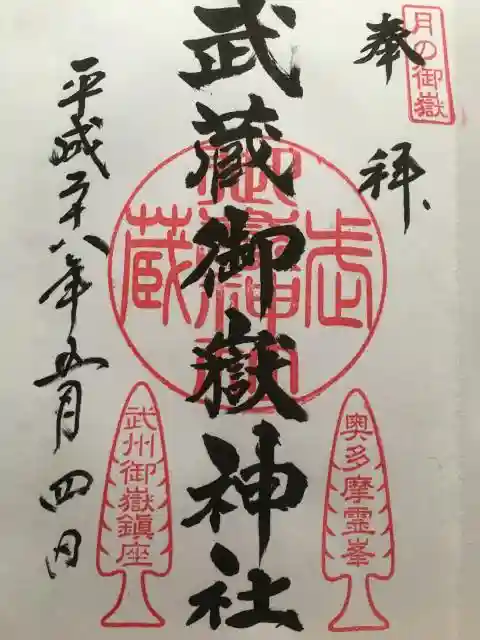 月の御嶽
奉拝
武蔵御嶽神社
武蔵
御嶽神社
奥多摩霊峯
平成二十八年五月四日
武州御嶽鎮座